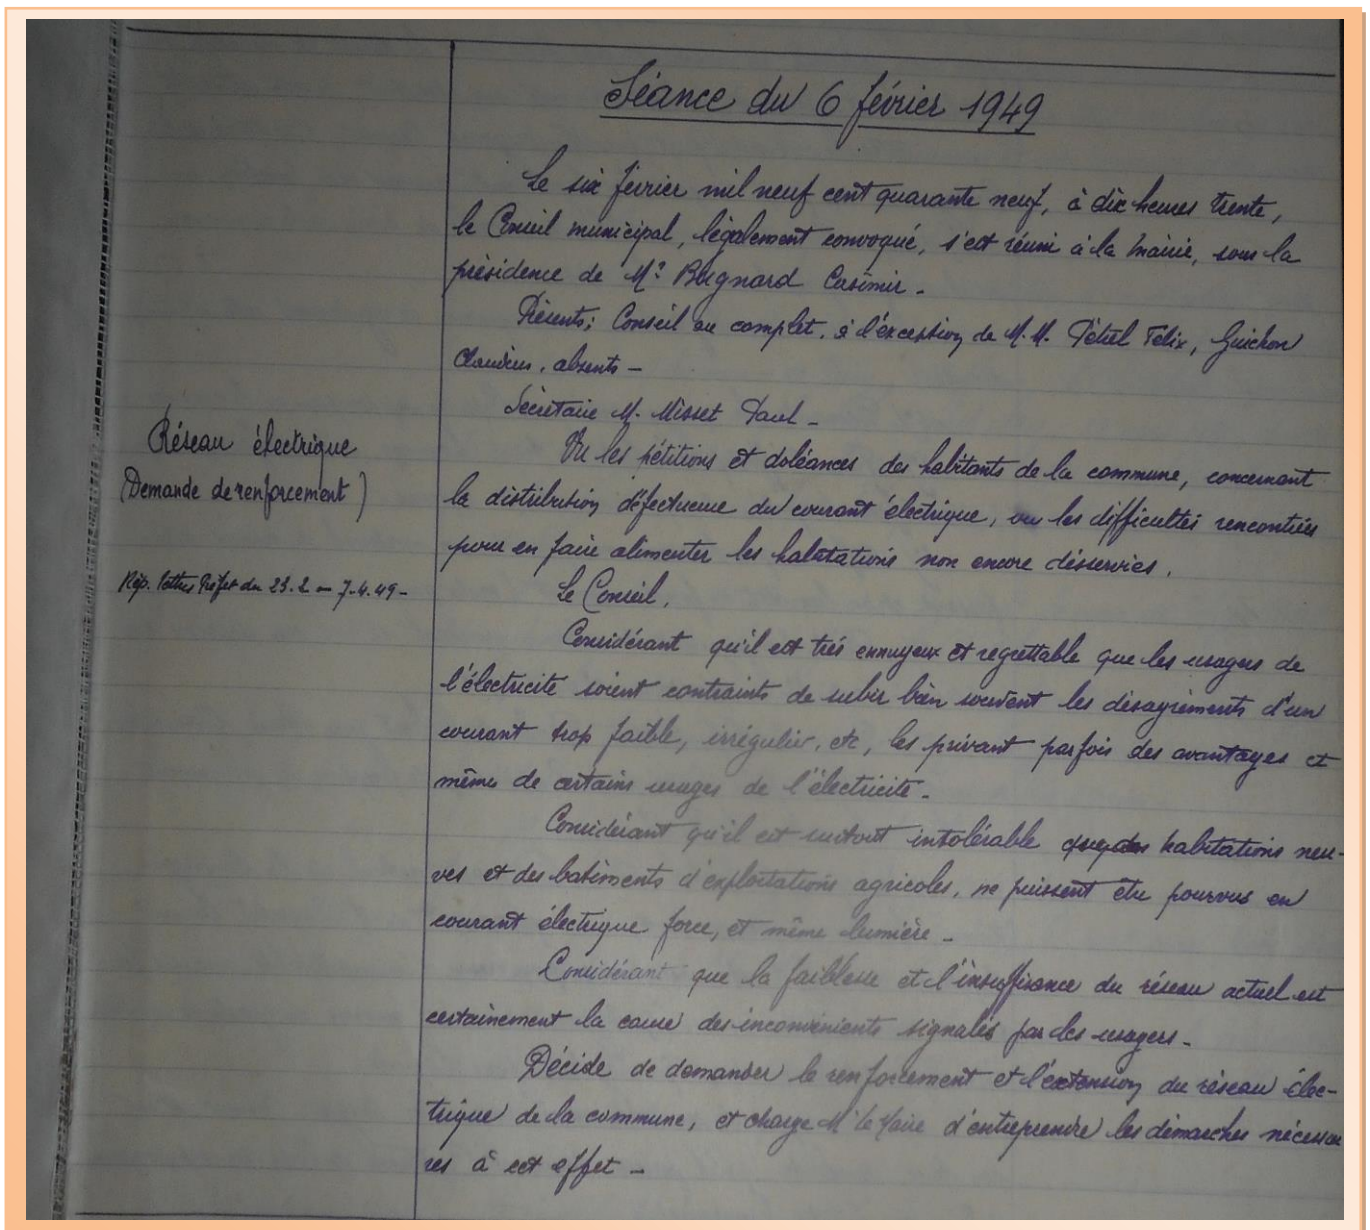 Séance du 6 février 1949
Le six février mil neuf cent quarante neuf, à dix heures trente,
le Conseil municipal, légalement convoqué, s'est réuni à la mairie, sous la
présidence de Mr Bugnard Casimir -
Présents; Conseil au complet, à l'exception de M.M. Pétrel Félix, Guichon
Claudius, absents -
Secrétaire M. Misset Paul -
Réseau électrique
(Demande de renforcement)
Rép. lettres Préfet du 23.2 - 7-4.49-
Vu les pétitions et doléances des habitants de la commune, concernant
la distribution défectueuse du courant électrique, ou les difficultés rencontrées
pour en faire alimenter les habitations non encore désservies,
Le Conseil,
Considérant qu'il est très ennuyeux et regrettable que les usagers de
l'électricité soient contraints de subir bien souvent les désagréments d'un
courant trop faible, irrégulier, etc, les privant parfois des avantages et
même de certains usages de l'électricité -
Considérant qu'il est surtout intolérable que des habitations neu-
ves et des batiments d'exploitations agricoles, ne puissent être pourvus en
courant électrique force, et même lumière -
Considérant que la faiblesse et l'insuffisance du réseau actuel est
certainement la cause des inconvénients signalés par les usagers -
Décide de demander le renforcement et l'extension du réseau élec-
trique de la commune, et charge Mr le Maire d'entreprendre les démarches nécessai
res à cet effet -